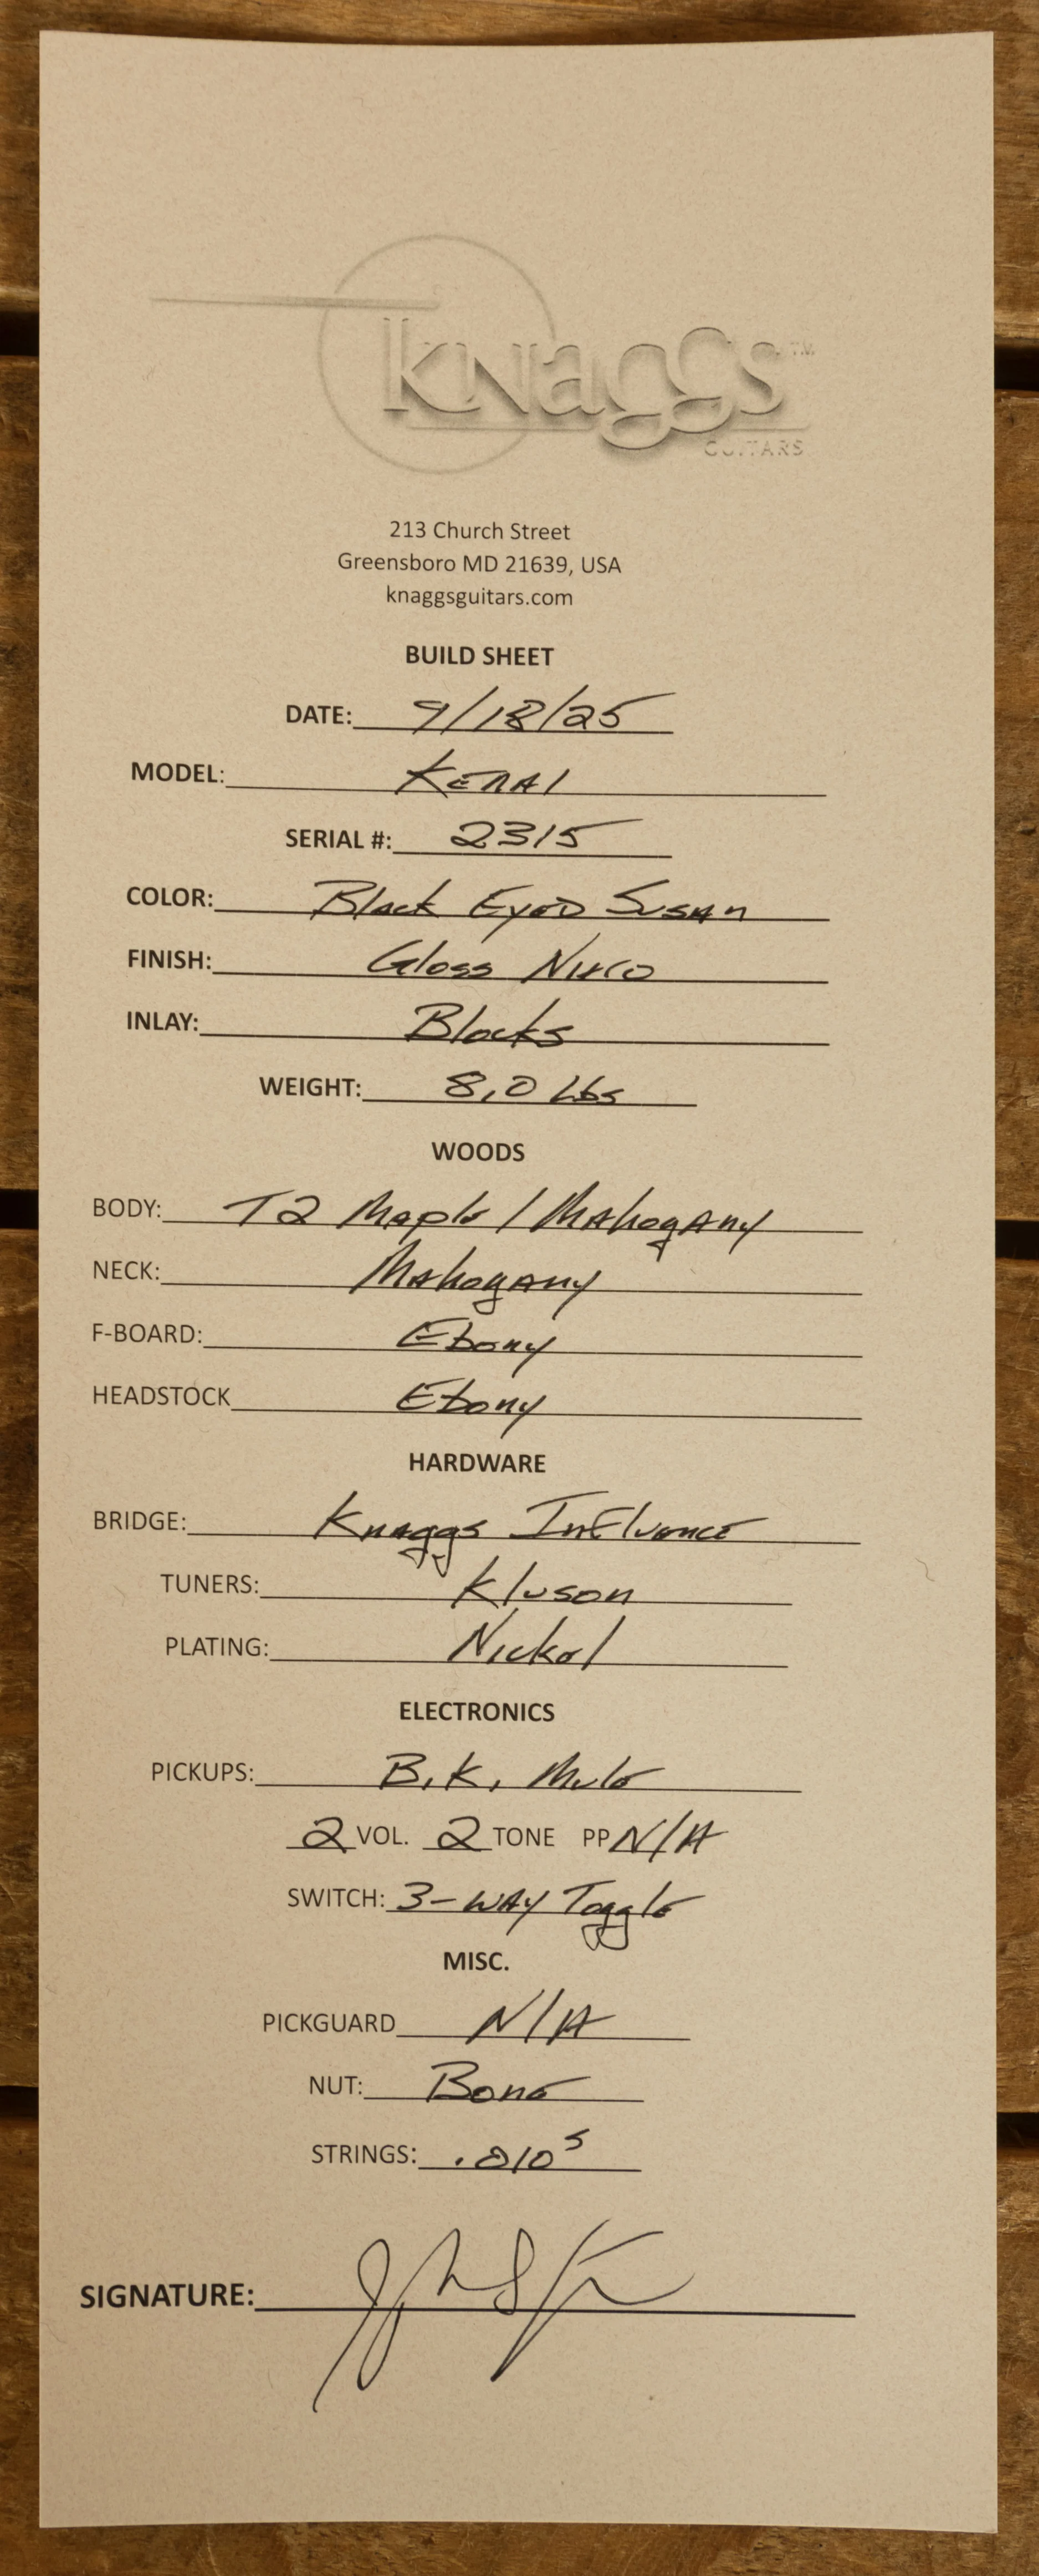 Knaggs™
GUITARS
213 Church Street
Greensboro MD 21639, USA
knaggsguitars.com
BUILD SHEET
DATE: 9/18/25
MODEL: KENAI
SERIAL #: 2315
COLOR: Black Eyed Susan
FINISH: Gloss Nitro
INLAY: Blocks
WEIGHT: 8.0 Lbs
WOODS
BODY: T2 Maple / Mahogany
NECK: Mahogany
F-BOARD: Ebony
HEADSTOCK Ebony
HARDWARE
BRIDGE: Knaggs Influence
TUNERS: Kluson
PLATING: Nickel
ELECTRONICS
PICKUPS: B.K. Mule
2 VOL. 2 TONE PP N/A
SWITCH: 3-WAY Toggle
MISC.
PICKGUARD N/A
NUT: Bone
STRINGS: .010s
SIGNATURE: